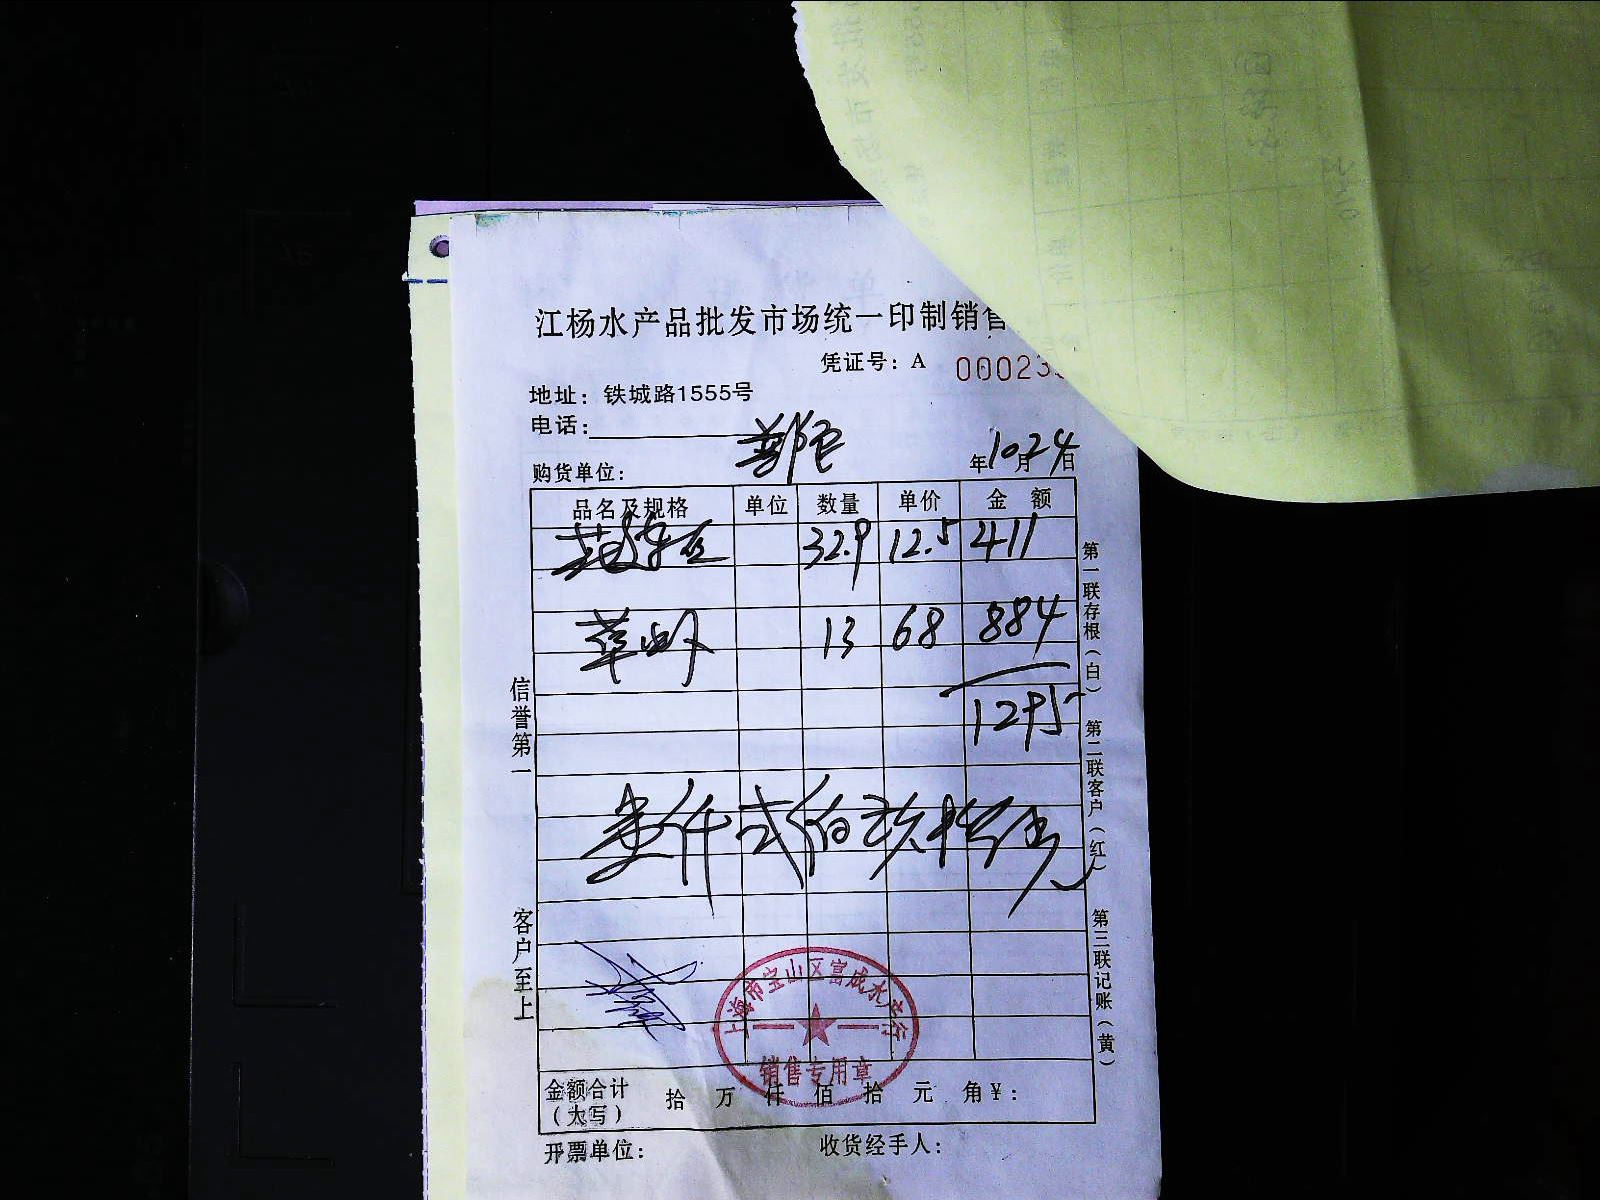 江杨水产品批发市场统一印制销售
凭证号：A 00023
地址：铁城路1555号
电话：
购货单位：
年10月24日
品名及规格 单位 数量 单价 金 额
32.9 12.5 411
草虾 13 68 884
1295
壹仟弍佰玖拾伍元
信誉第一
客户至上
第一联存根（白）
第二联客户（红）
第三联记账（黄）
上海市宝山区富成水产行
销售专用章
金额合计（大写） 拾 万 仟 佰 拾 元 角￥：
开票单位： 收货经手人：